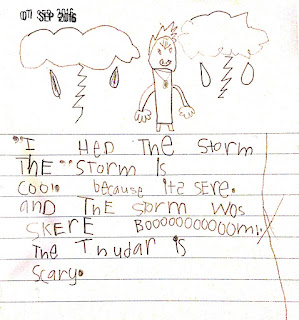 07 SEP 2016
"I HED THE Storm
THE "STORM IS
COOL because its SERE.
and THE STORM Wos
SKERE Booooooooooom!
The Thudar is
Scary.